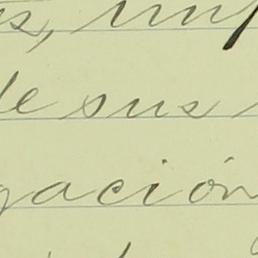 s, imp
de sus
gación